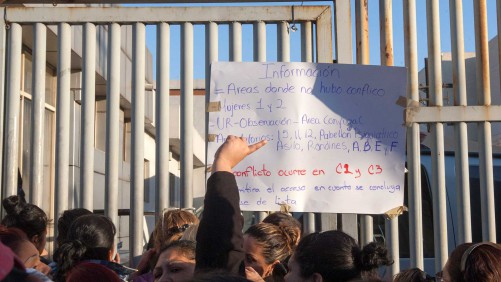 Información
= Areas donde no hubo conflicto
Mujeres 1 y 2
= UR-Observación - Area Conyugal
1,5,11,12, Pabellon
Asilo, Rondines, A, B, E, y F
conflicto ocurre en C1 y C3
el acceso en cuanto se concluya
de lista